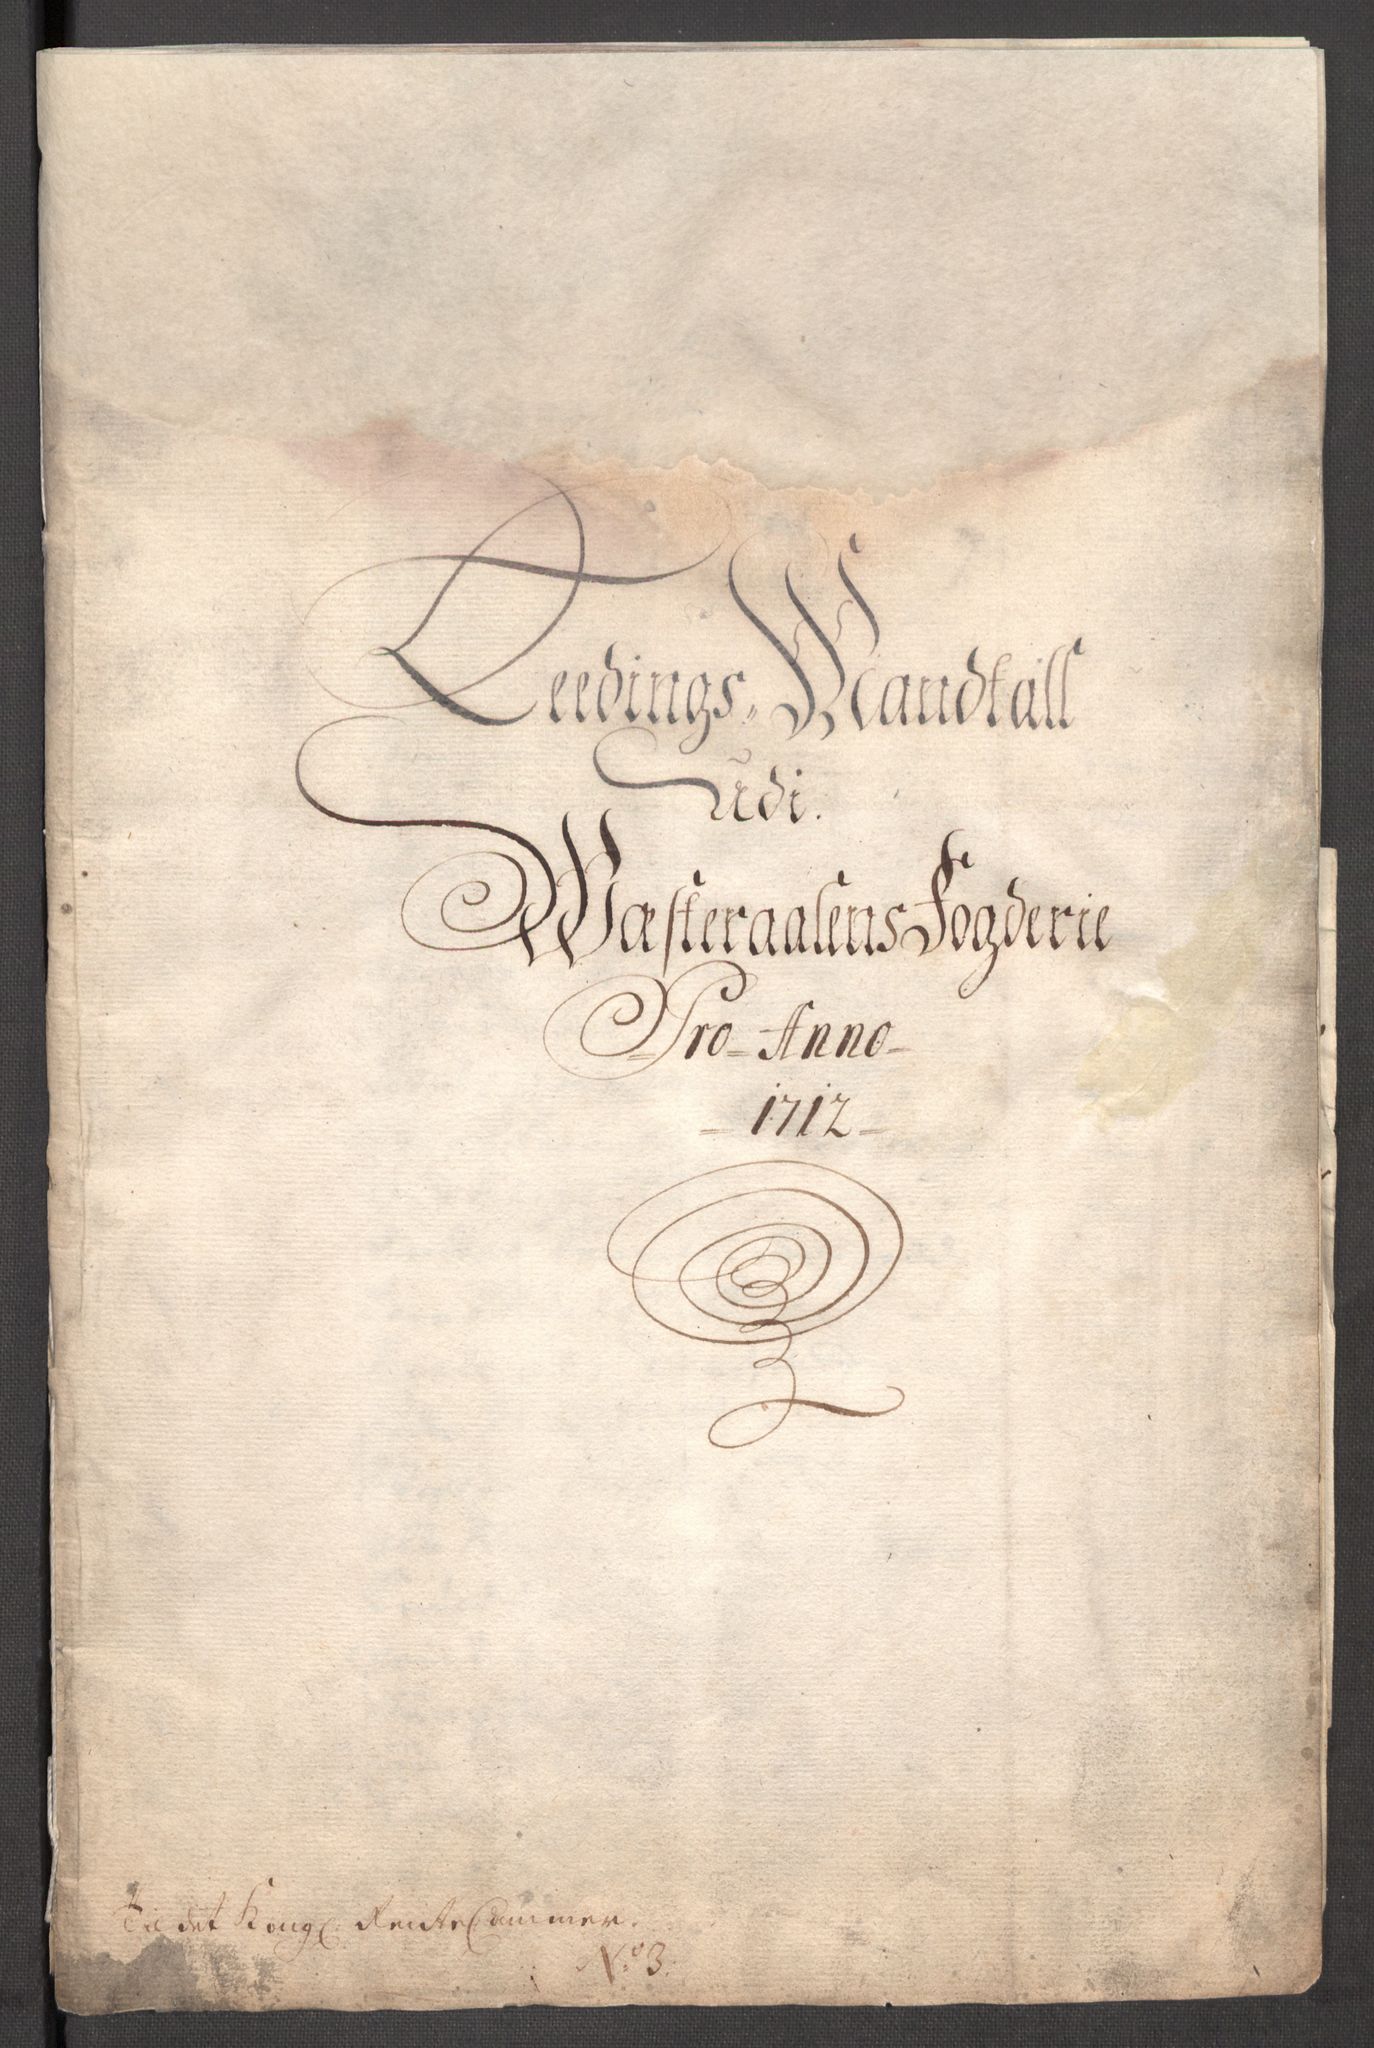 Leedings Mandtall
Udi.
Wæsteraalens Fogderie
Pro Anno
1712
Til det Kongl: RenteCammer.
No: 3.